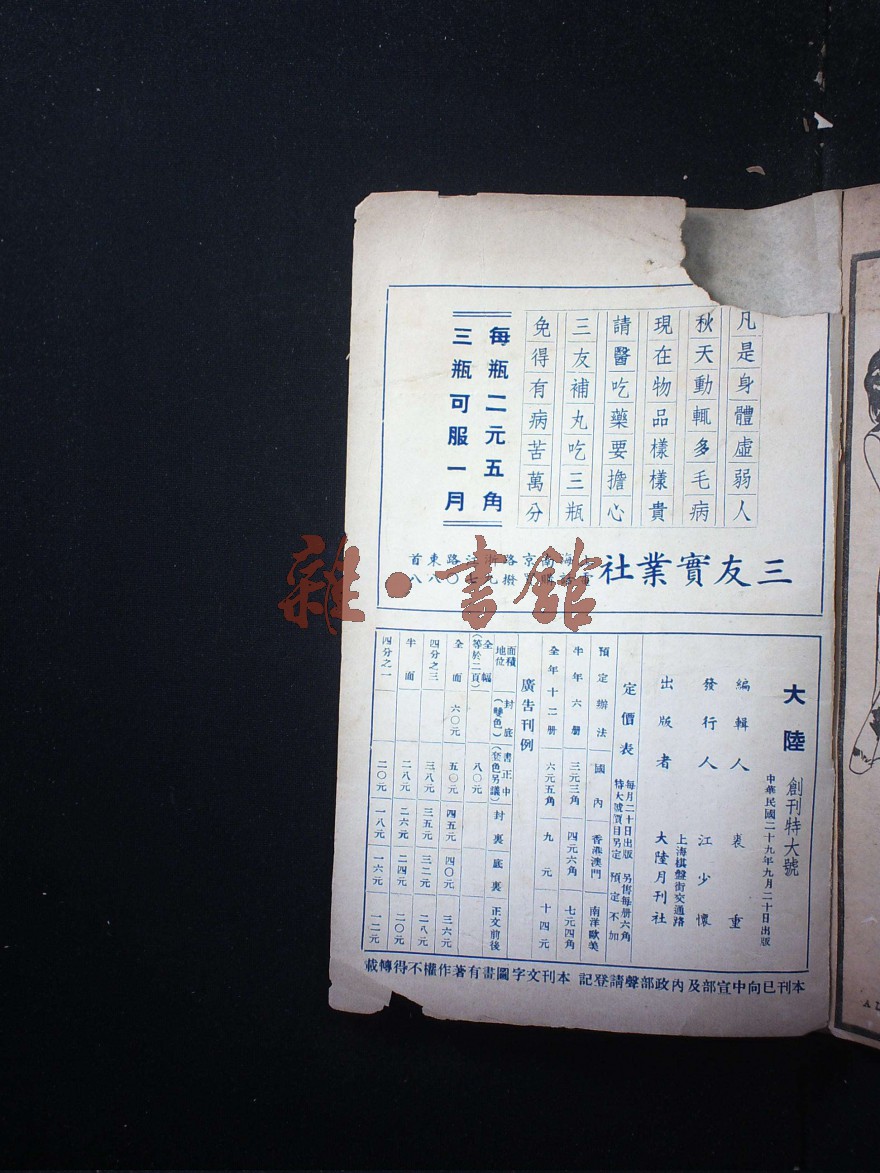 凡是身體虛弱人
秋天動輒多毛病
現在物品樣樣貴
請醫吃藥要擔心
三友補丸吃三瓶
免得有病苦萬分
每瓶二元五角
三瓶可服一月
三友實業社
海南京路浙江路東首
八八〇七九
雜·書館
大陸 創刊特大號
中華民國二十九年九月二十日出版
編輯人 裘重
發行人 江少懷
上海棋盤街交通路
出版者 大陸月刊社
定價表
每月二十日出版 另售每册六角
特大號價目另定 預定不加
預定辦法 國內 香港澳門 南洋歐美
半年六册 三元三角 四元六角 七元四角
全年十二册 六元五角 九元 十四元
廣告刊例
面積 地位 封底(雙色) 書正中(套色另議) 封裏 底裏 正文前後
全幅(等於二頁) 八〇元
全面 六〇元 五〇元 四五元 四〇元 三六元
四分之三 三八元 三五元 三二元 二八元
半面 二八元 二六元 二四元 二〇元
四分之一 二〇元 一八元 一六元 一二元
本刊已向中宣部及內政部聲請登記 本刊文字圖畫有著作權不得轉載